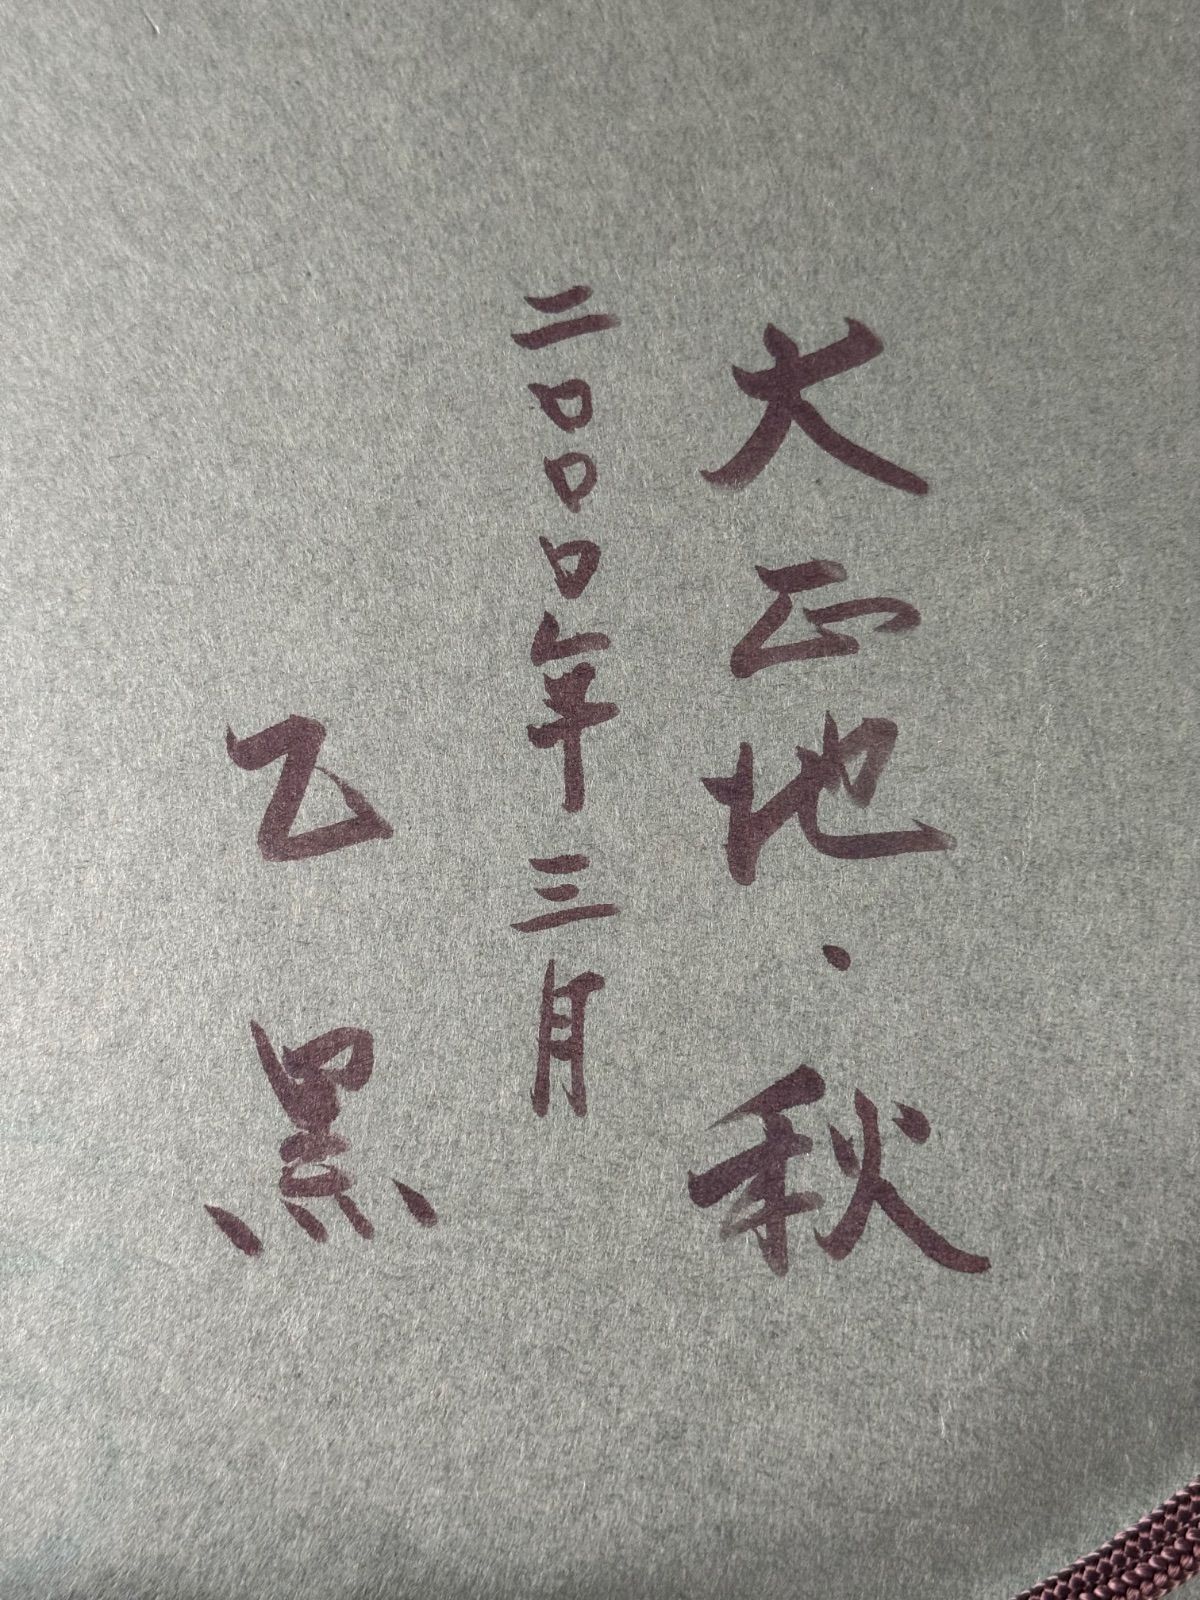 大正地·秋
二〇〇〇年三月
乙黑